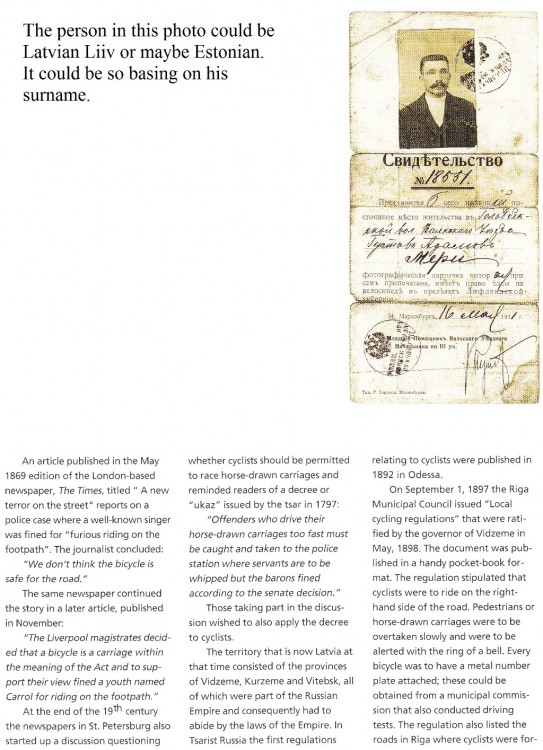 The person in this photo could be
Latvian Liiv or maybe Estonian.
It could be so basing on his
surname.
Свидѣтельство
№ 18551.
Предъявител сего имѣющій по-
стоянное мѣсто жительства въ
ской вол Валкскаго Уѣзда
Густавъ Адамовъ
Мери
фотографическая карточка котор при
семъ припечатана, имѣетъ право ѣзды на
велосипедѣ въ предѣлахъ Лифляндской
губерніи.
М. Маріенбургъ, 16 мая
Младшій Помощникъ Валкскаго Уѣзднаго
Начальника по III уч.
An article published in the May
1869 edition of the London-based
newspaper, The Times, titled " A new
terror on the street" reports on a
police case where a well-known singer
was fined for "furious riding on the
footpath". The journalist concluded:
"We don't think the bicycle is
safe for the road."
The same newspaper continued
the story in a later article, published
in November:
"The Liverpool magistrates decid-
ed that a bicycle is a carriage within
the meaning of the Act and to sup-
port their view fined a youth named
Carrol for riding on the footpath."
At the end of the 19th century
the newspapers in St. Petersburg also
started up a discussion questioning
whether cyclists should be permitted
to race horse-drawn carriages and
reminded readers of a decree or
"ukaz" issued by the tsar in 1797:
"Offenders who drive their
horse-drawn carriages too fast must
be caught and taken to the police
station where servants are to be
whipped but the barons fined
according to the senate decision."
Those taking part in the discus-
sion wished to also apply the decree
to cyclists.
The territory that is now Latvia at
that time consisted of the provinces
of Vidzeme, Kurzeme and Vitebsk, all
of which were part of the Russian
Empire and consequently had to
abide by the laws of the Empire. In
Tsarist Russia the first regulations
relating to cyclists were published in
1892 in Odessa.
On September 1, 1897 the Riga
Municipal Council issued "Local
cycling regulations" that were rati-
fied by the governor of Vidzeme in
May, 1898. The document was pub-
lished in a handy pocket-book for-
mat. The regulation stipulated that
cyclists were to ride on the right-
hand side of the road. Pedestrians or
horse-drawn carriages were to be
overtaken slowly and were to be
alerted with the ring of a bell. Every
bicycle was to have a metal number
plate attached; these could be
obtained from a municipal commis-
sion that also conducted driving
tests. The regulation also listed the
roads in Riga where cyclists were for-